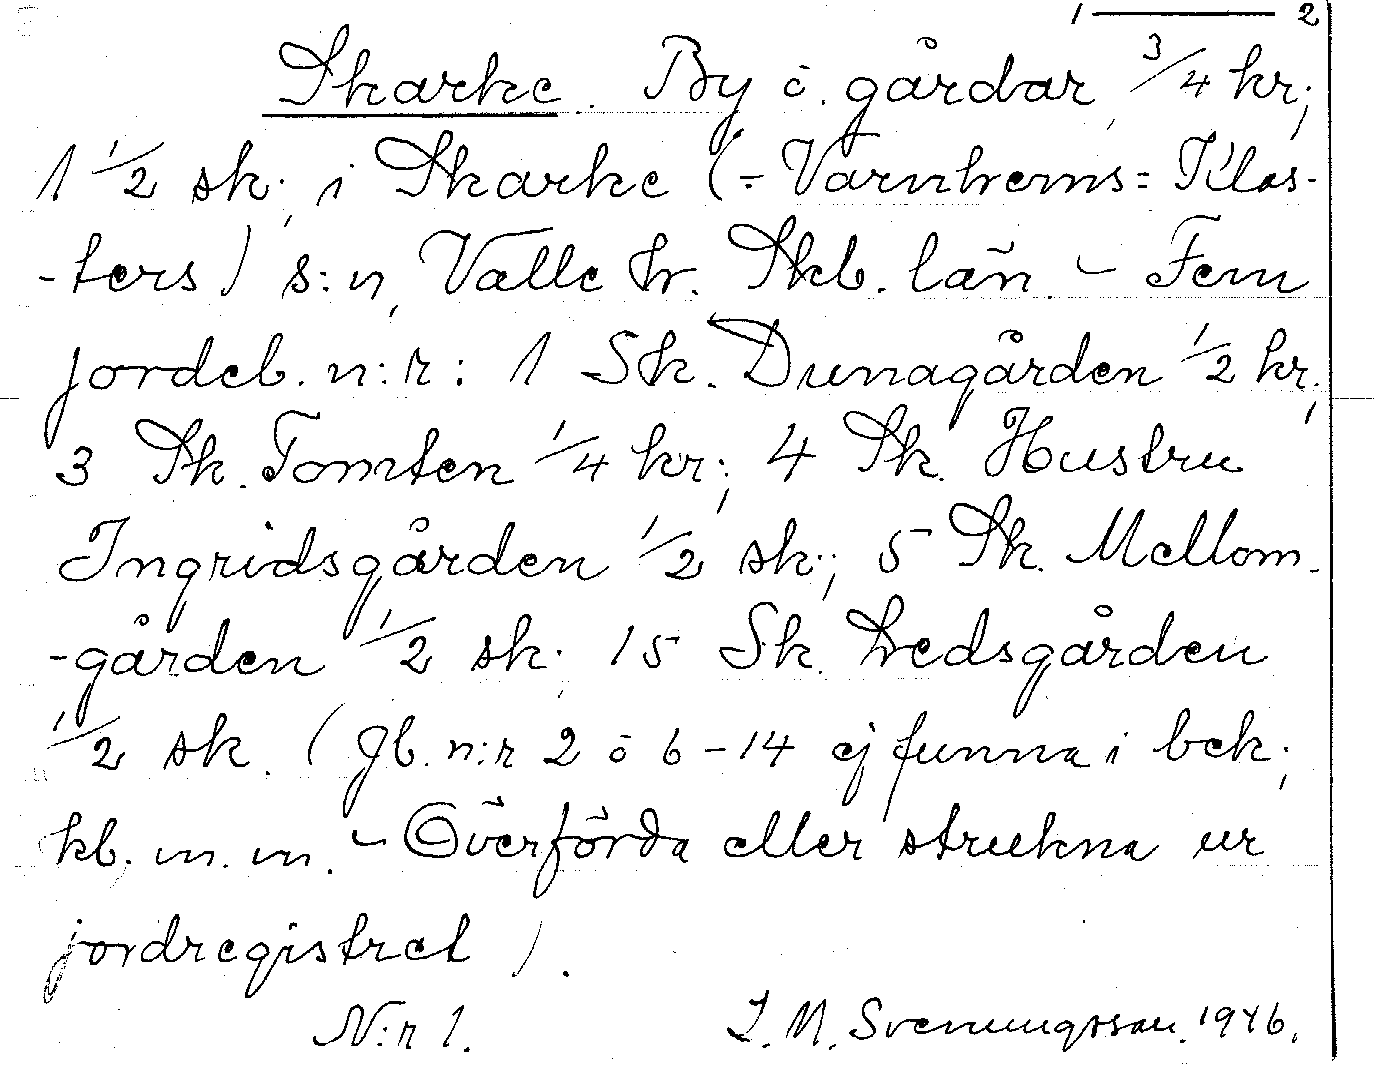 1 — 2
Skarke. By o. gårdar, 3/4 kr;
1 1/2 sk; i Skarke (÷ Varnhems= Klos-
-ters) s:n, Valle hr. Skb. län. – Fem
jordeb. n:r: 1 Sk. Dunagården 1/2 kr;
3 Sk. Tomten 1/4 kr; 4 Sk. Hustru
Ingridsgården 1/2 sk; 5 Sk. Mellom-
-gården 1/2 sk; 15 Sk. Hedsgården
1/2 sk. (Jb. n:r 2 o 6-14 ej funna i bck;
kb. m. m. – Överförda eller strukna ur
jordregistret).
N:r 1. J. M. Svenungsson. 1946.